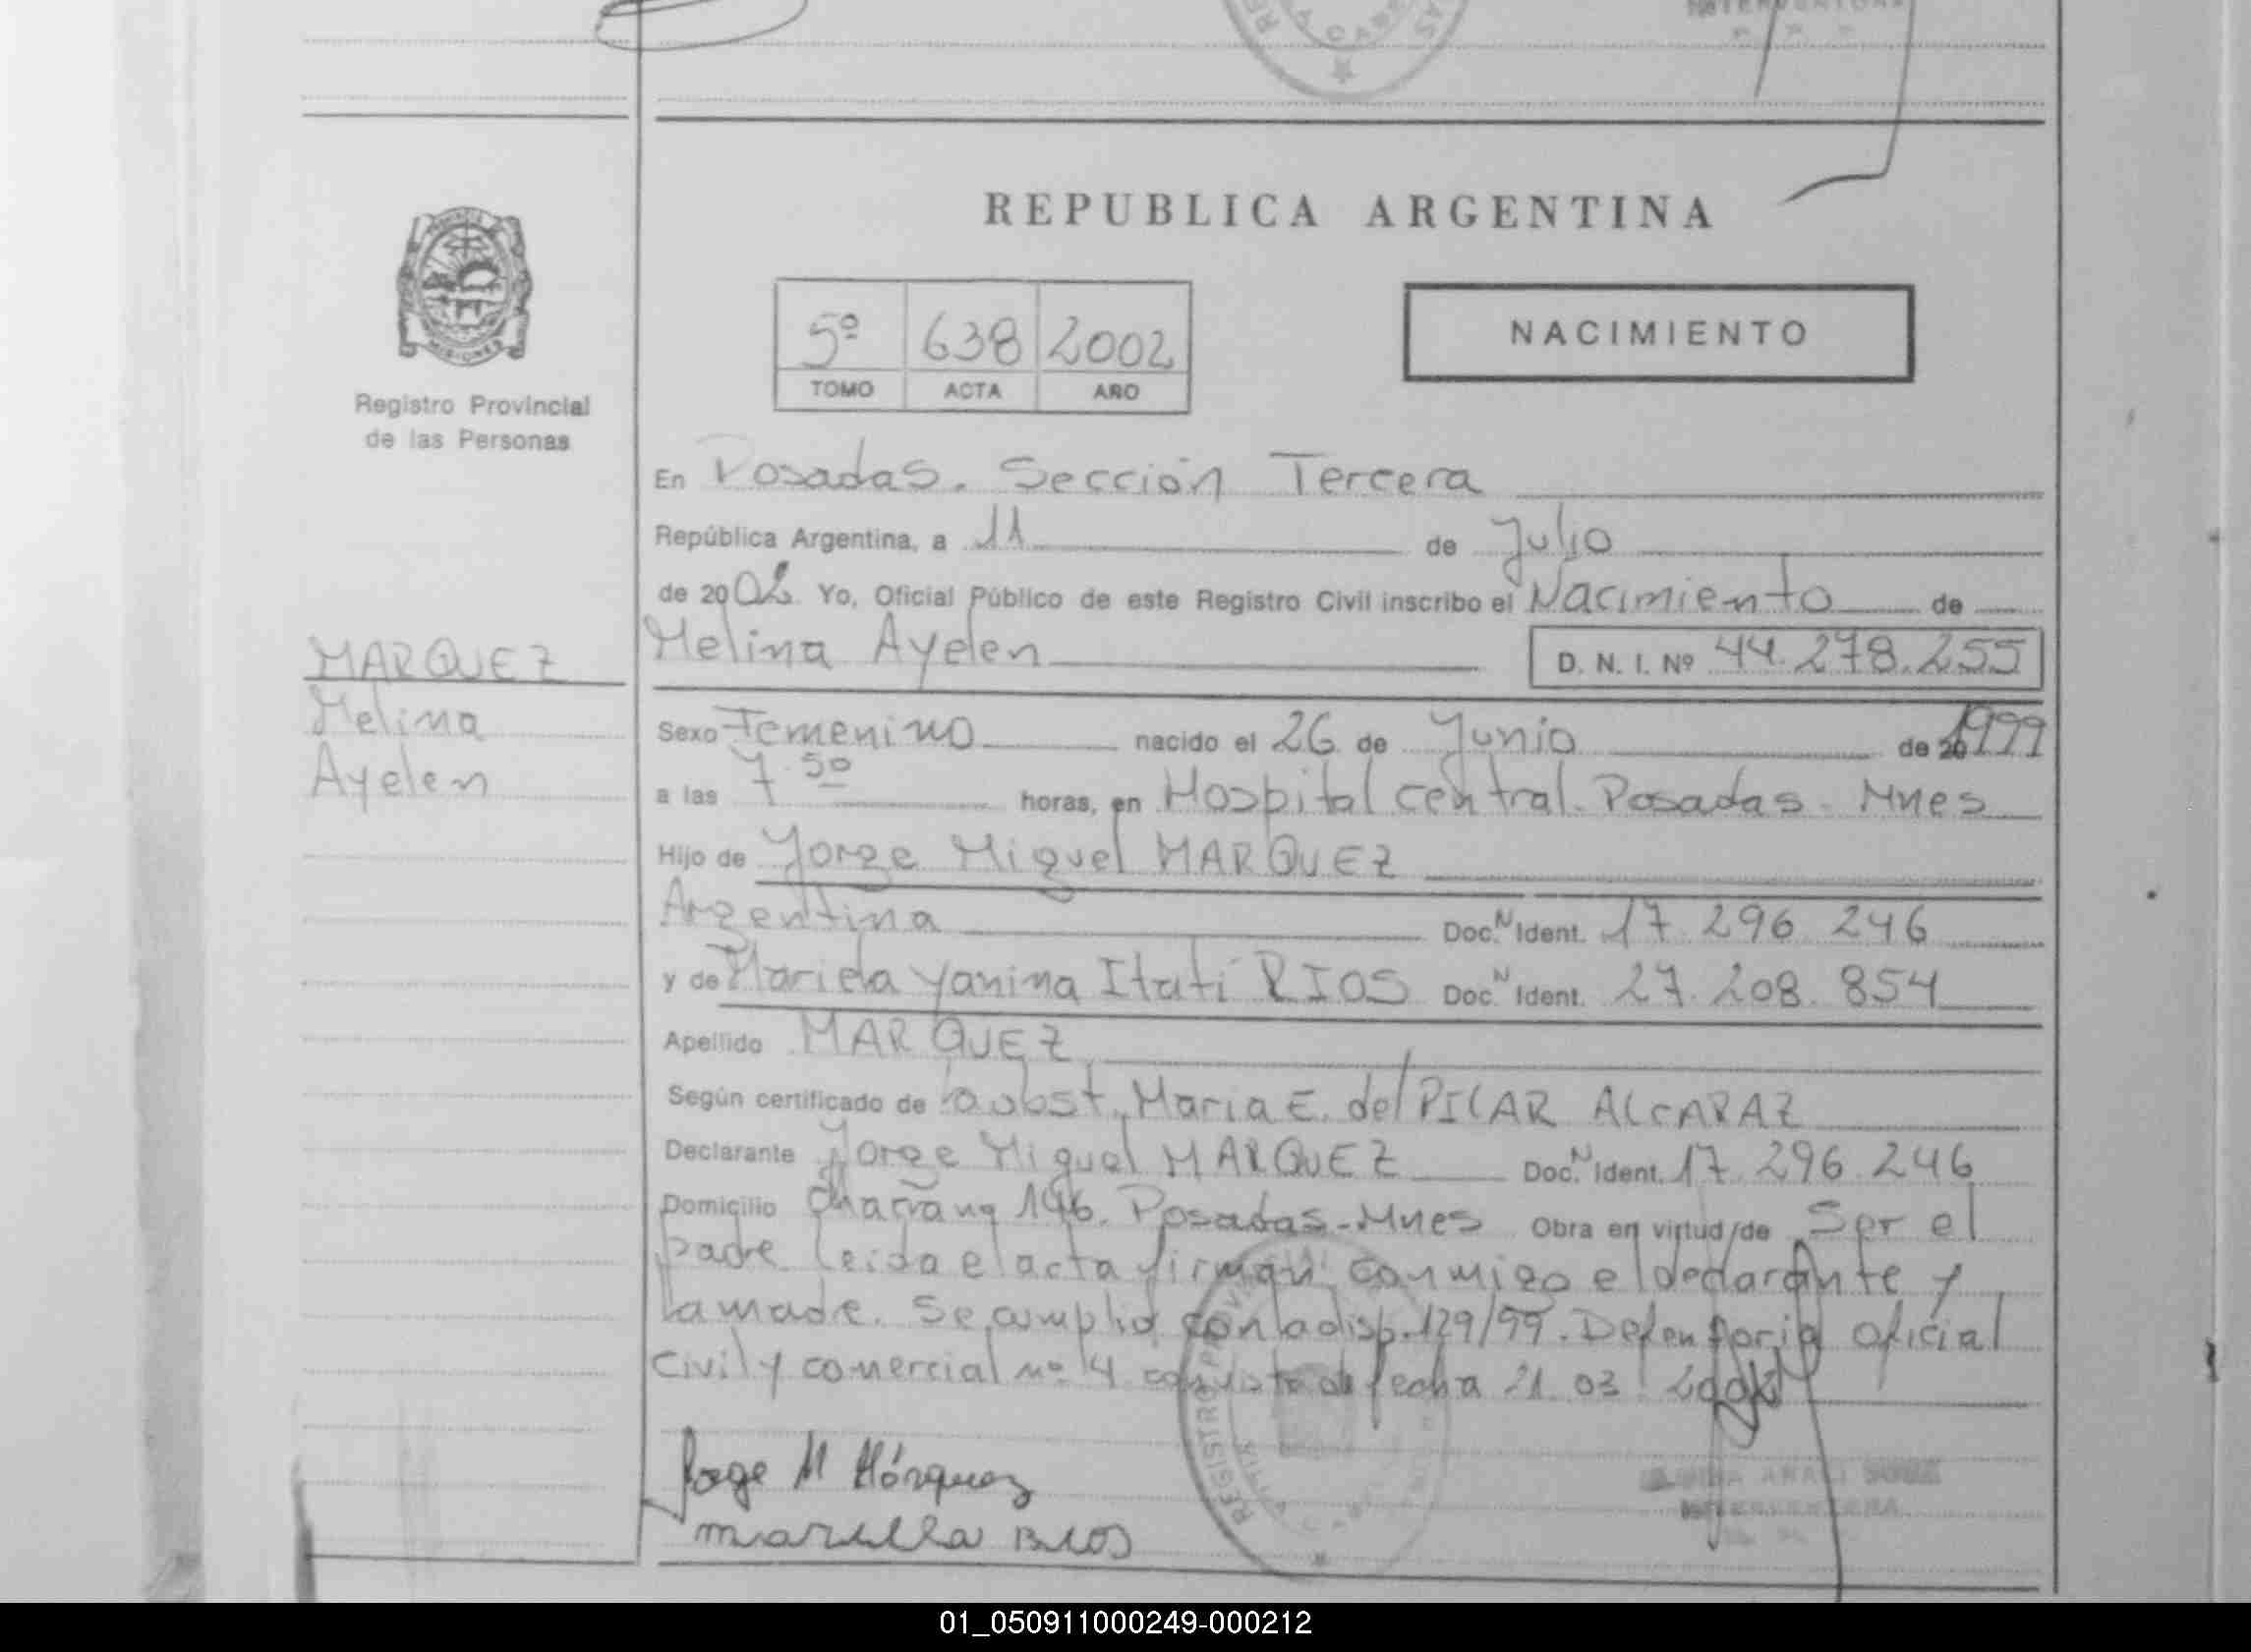 REPUBLICA ARGENTINA
5º 638 2002
TOMO ACTA AÑO
NACIMIENTO
MISIONES
Registro Provincial
de las Personas
MARQUEZ
Melina
Ayelen
En Posadas. Sección Tercera
República Argentina, a 11 de Julio
de 2002 Yo, Oficial Público de este Registro Civil inscribo el Nacimiento de
Melina Ayelen D. N. I. Nº 44.278.255
Sexo Femenino nacido el 26 de Junio de 1999
a las 7.50 horas, en Hospital central. Posadas - Mnes
Hijo de Jorge Miguel MARQUEZ
Argentina Doc. N Ident. 17.296.246
y de Mariela Yanina Itatí RIOS Doc. N Ident. 27.208.854
Apellido MARQUEZ
Según certificado de la obst. Maria E. del PILAR ALCARAZ
Declarante Jorge Miguel MARQUEZ Doc. N Ident. 17.296.246
Domicilio 146. Posadas - Mnes Obra en virtud de Ser el
padre. Leida el acta firman conmigo el declarante y
la madre. Se cumplió con la disp. 129/99. Defensoria oficial
Civil y comercial nº 4 con fecha 21.03.
Jorge M Márquez
Mariela Rios
REGISTRO PROVINCIAL
INTERVENTORA
01_050911000249-000212